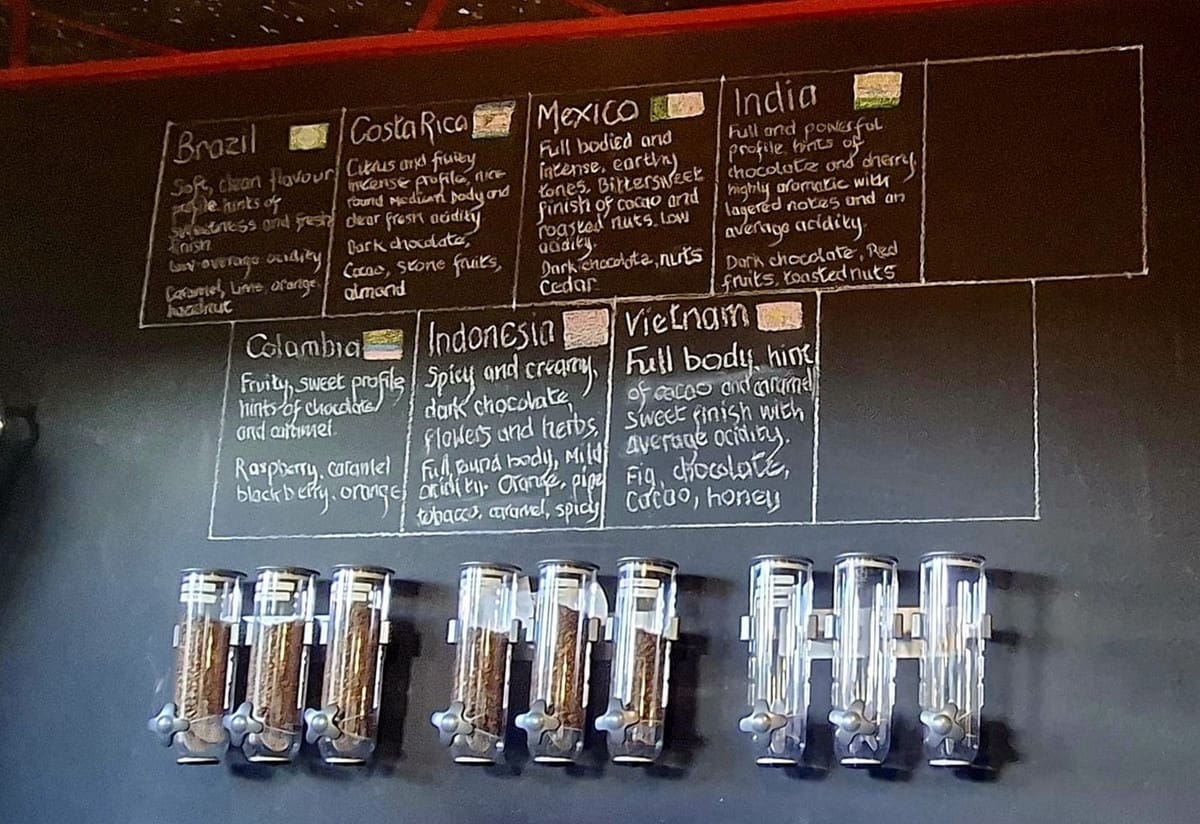 Brazil
Soft, clean flavour
profile hints of
sweetness and fresh
finish
low average acidity
Caramel, Lime, orange,
hazelnut
Costa Rica
Citrus and fruity
intense profile, nice
round medium body and
clear fresh acidity
Dark chocolate,
Cacao, stone fruits,
almond
Mexico
Full bodied and
intense, earthy
tones, Bittersweet
finish of cacao and
roasted nuts. Low
acidity.
Dark chocolate, nuts
Cedar
India
Full and powerful
profile, hints of
chocolate and cherry,
highly aromatic with
layered notes and an
average acidity.
Dark chocolate, Red
fruits, toasted nuts
Colambia
Fruity, sweet profile,
hints of chocolate
and caramel.
Raspberry, caramel
blackberry, orange
Indonesia
Spicy and creamy,
dark chocolate,
flowers and herbs
Full, round body, Mild
acidity. Orange, pipe
tobacco, caramel, spicy
Vietnam
Full body, hint
of cacao and caramel
sweet finish with
average acidity.
Fig, chocolate,
cacao, honey